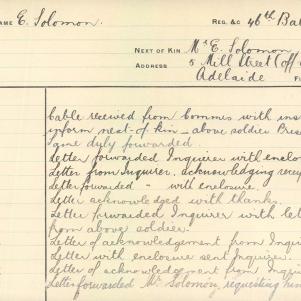 NAME E. Solomon. REG. &C 46th Bat
NEXT OF KIN Mr E. Solomon
ADDRESS 5 Mill Street (off
Adelaide
Cable received from Commis with ins
inform next of kin - above soldier
duly forwarded.
Letter forwarded Inquirer with enclo
Letter from Inquirer, acknowledging recei
Letter forwarded " with enclosure.
Letter acknowledged with thanks.
Letter forwarded Inquirer with let
from above soldier.
Letter of acknowledgement from Inqui
Letter with enclosure sent Inquirer.
Letter of acknowledgement from Inqui
Letter forwarded Mr Solomon, requesting him